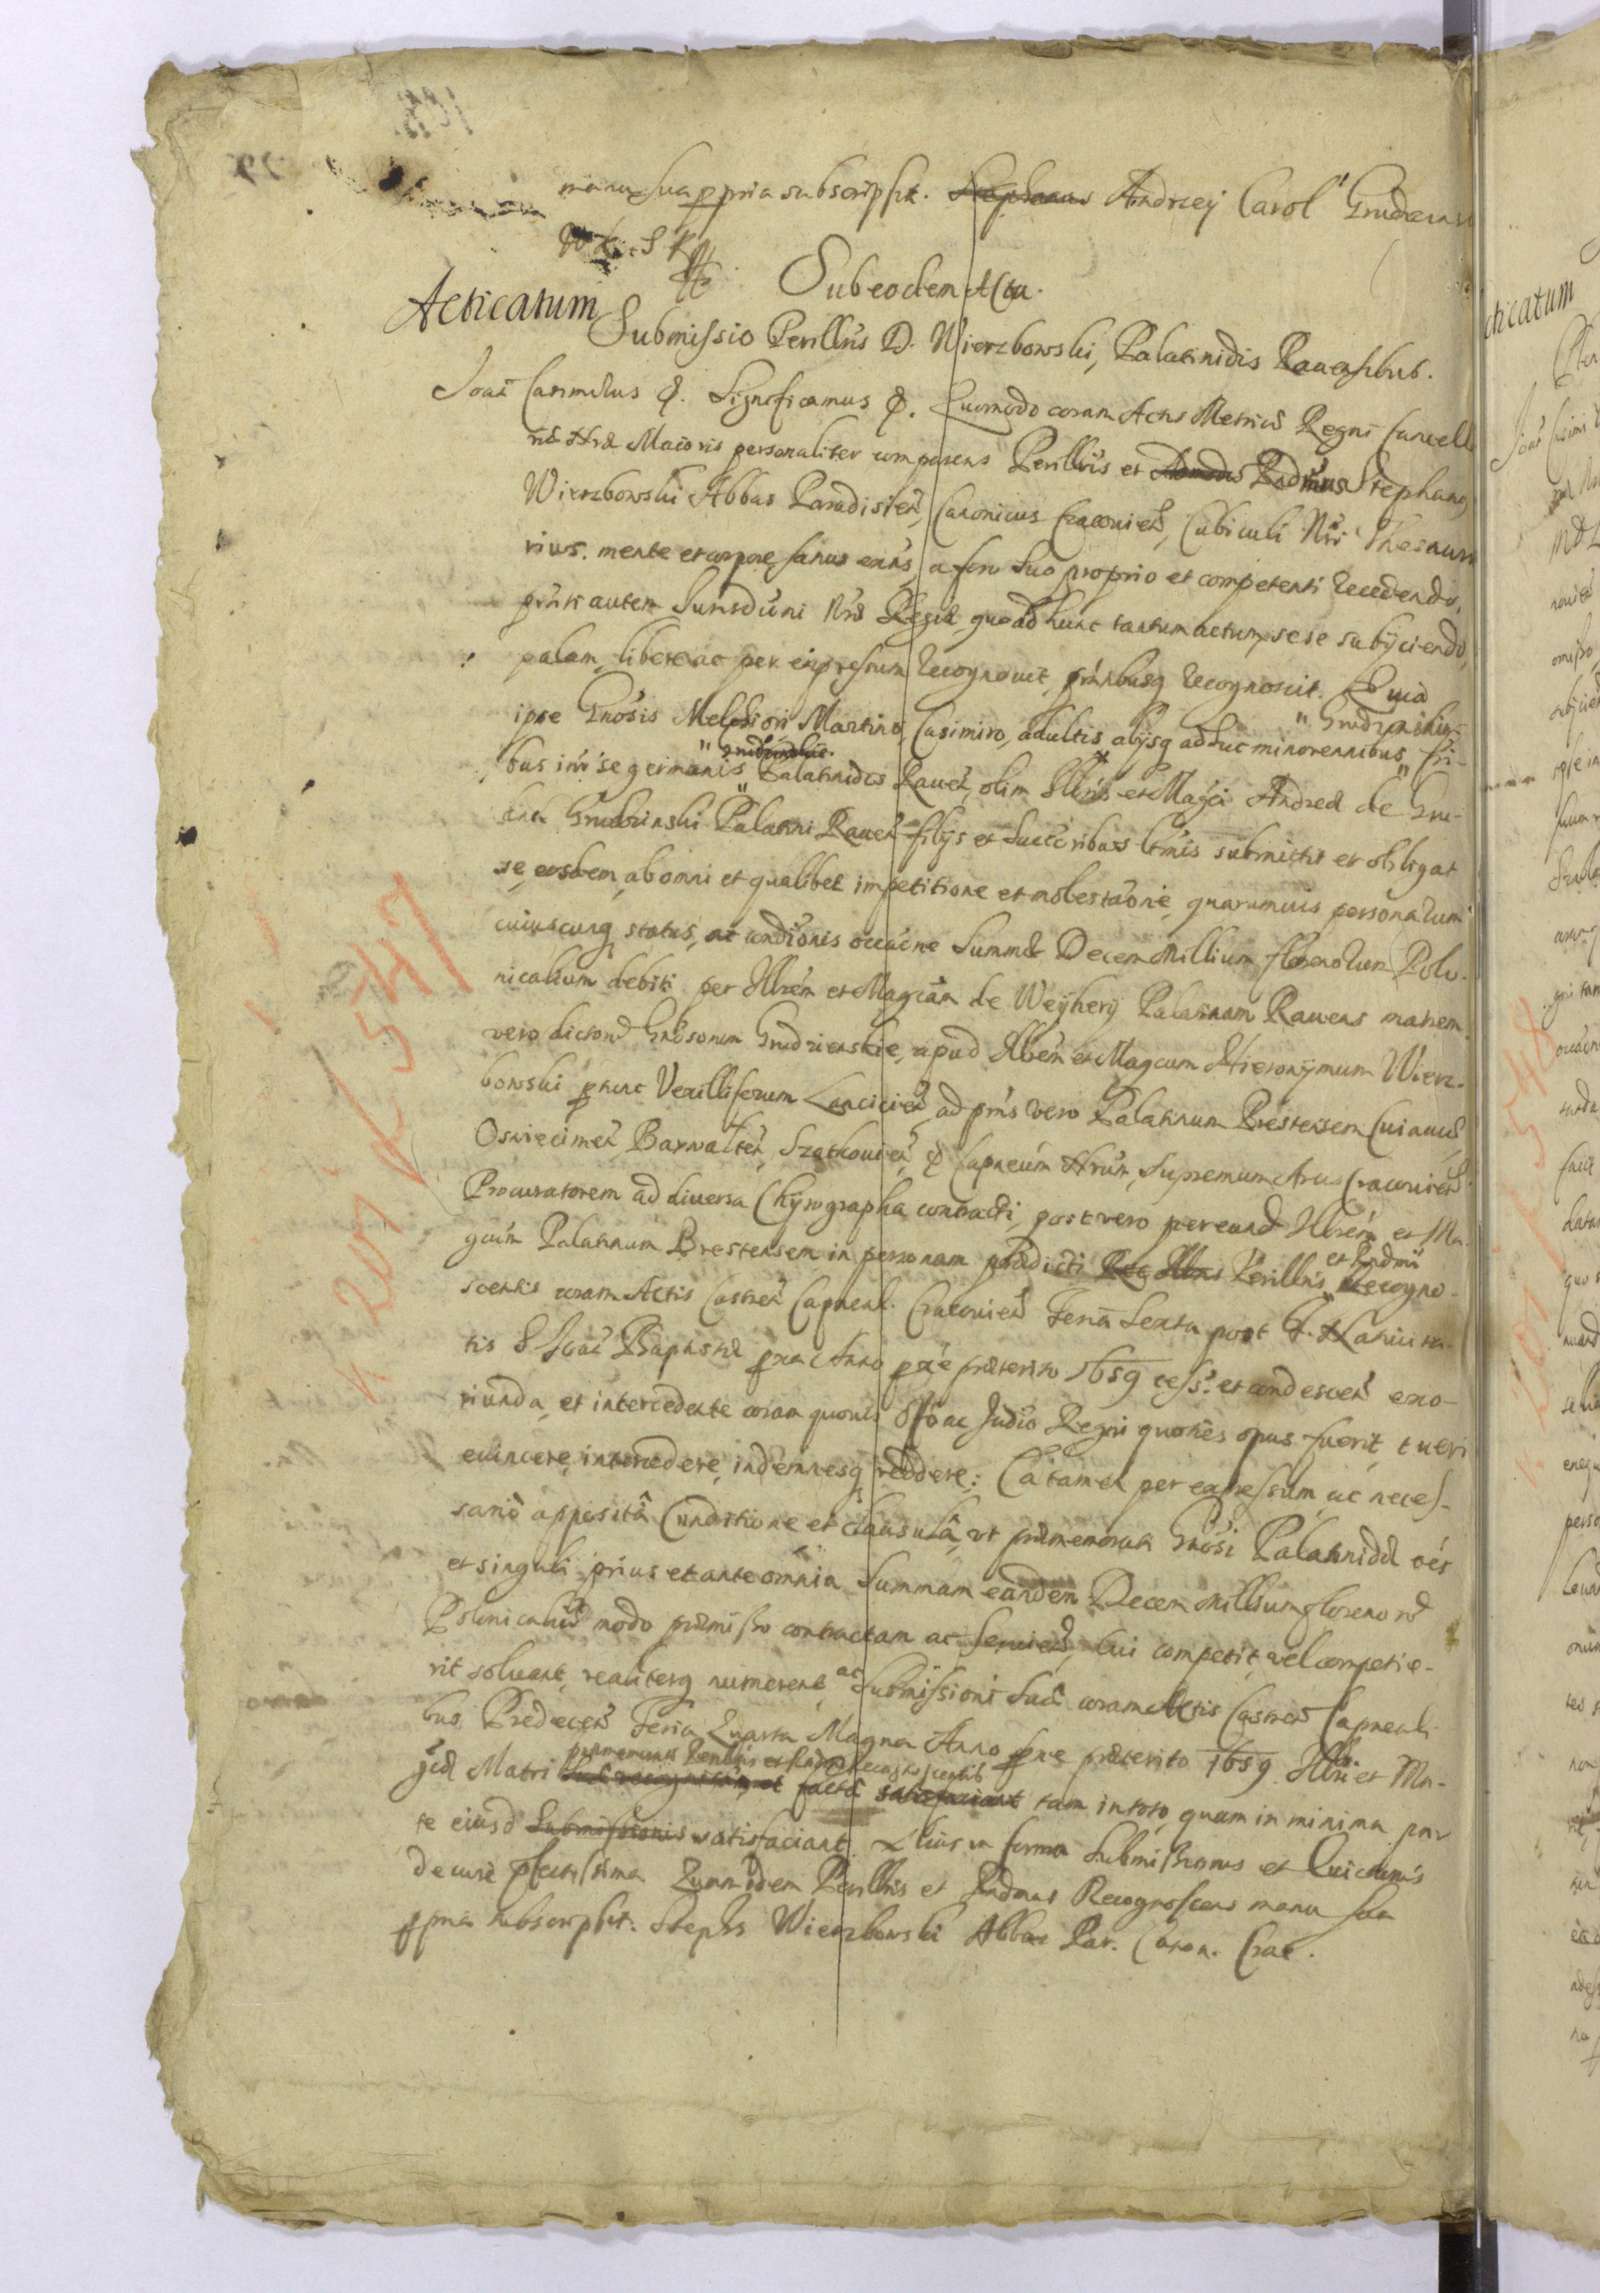 manu sua ppria subscripsit. Stephanus Andrzey Carol Grudzinski
Sub eodem Actu.
Acticatum
Submissio Perillris D. Wierzbowski, Palatinidis Ravensibus.
Joaes Casimirus &. Significamus &. Quomodo coram Actis Metrices Regni Cancella
riæ Nræ Maioris personaliter comparens Perillris et Admodus Rndmus Stephanus
Wierzbowski Abbas Paradisien, Canonicus Cracovien, Cubiculi Nri Thesaura
rius. mente et corpore sanus exns, a foro suo proprio et competenti recedendo,
prnti autem Jurisdioni Nræ Regiæ, quo ad hunc tantum actum sese subijciendo,
palam, libere ac per expressum recognovit, prntibusq recognoscit. Quia
ipse Gnosis Melchiori Martino, Casimiro, adultis, alijsq adhuc minorennibus, " Grudzinskie Fri-
bus inr se germanis " Grudzinskie Palatinidis Raven, olim Illris et Magci Andreæ de Gru-
dna Grudzinski Palatini Raven filijs et succoribus ltmis submittit et obligat
se, eosdem, ab omni et qualibet impetitione et molestaone, quarumvis personarum
cuiuscunq status, ac condionis occaone Summæ Decem Millium florenorum Polo-
nicalium debiti per Illrem et Magcam de Weyhery Palatinam Ravens matrem
vero dictorum Gnosorum Grudzinskie, apud Illrem et Magcum Hieronymum Wierz-
bowski ptunc Vexilliferum Lancicien, ad prns vero Palatinum Brestensem Cuiaviæ,
Osviecimen, Barwalten, Szatkovien, & Capneum Nrum, Supremum Arcis Cracovien
Procuratorem ad diversa Chyrographa contracti, post vero per eund Illrem et Ma-
gcum Palatinum Brestensem in personam prædicti Rdi Illris Perillris et Rndmi Recogno-
scentis coram Actis Castren Capneal. Cracovien Feria Sexta post F. Nativita-
tis S Joaes Baptistæ prox Anno pxe præterito 1659 cess. et condescen exo-
riunda, et intercedente coram quovis Offo ac Judio Regni quoties opus fuerit, tueri
evincere, intercedere, indemnesq reddere; Ea tamen per expressum ac neces-
sario appositâ Conditione, et clausulâ, ut præmemorati Gnosi Palatinidæ oes
et singuli, prius et ante omnia Summam eandem Decem Millium floreno r
Polonicaliu modo præmisso contractam ac servien, cui competit, vel competie-
rit solvant, realiterq numerent, ac Submissioni suæ coram Actis Castren Capneali-
bus Predecen Feria Quarta Magna Anno pxe præterito 1659. Illri et Ma-
gcæ Matri præmemorati Perillris et Rndmi Recognoscentis factæ satisfaciant tam in toto, quam in minima par
te eiusd Submissionis satisfaciant. Latius in forma Submissionis et Quietaonis
de iure pfectissima Quam idem Perillris et Rndmus Recognoscens manu sua
ppria subscripsit. Stephs Wierzbowski Abbas Par. Canon. Crac.
k 201 R 547